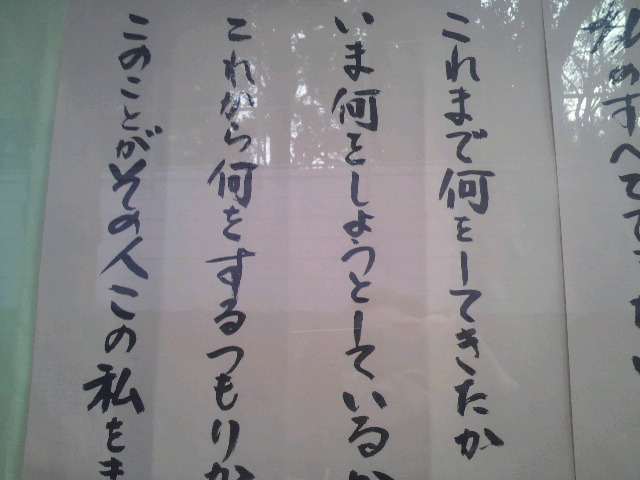 これまで何をしてきたか
いま何をしようとしているか
これから何をするつもりか
このことがその人この私をき